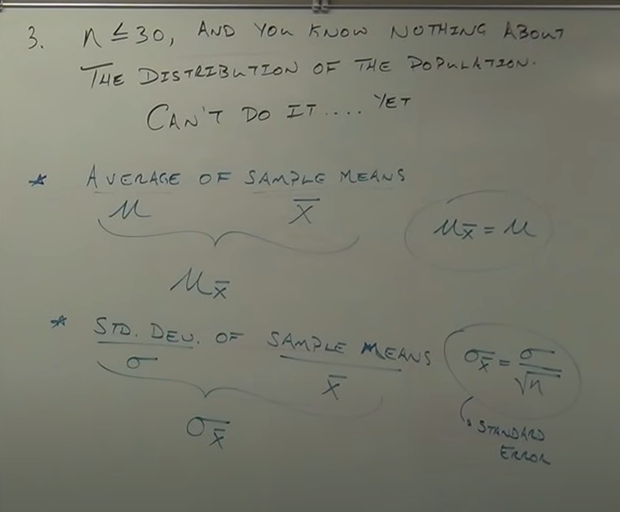 3. n ≤ 30, AND YOU KNOW NOTHING ABOUT
THE DISTRIBUTION OF THE POPULATION.
CAN'T DO IT.... YET
* AVERAGE OF SAMPLE MEANS
μ x̄
μx̄ = μ
μx̄
* STD. DEV. OF SAMPLE MEANS
σ x̄
σx̄ = σ/√n
STANDARD
ERROR
σx̄